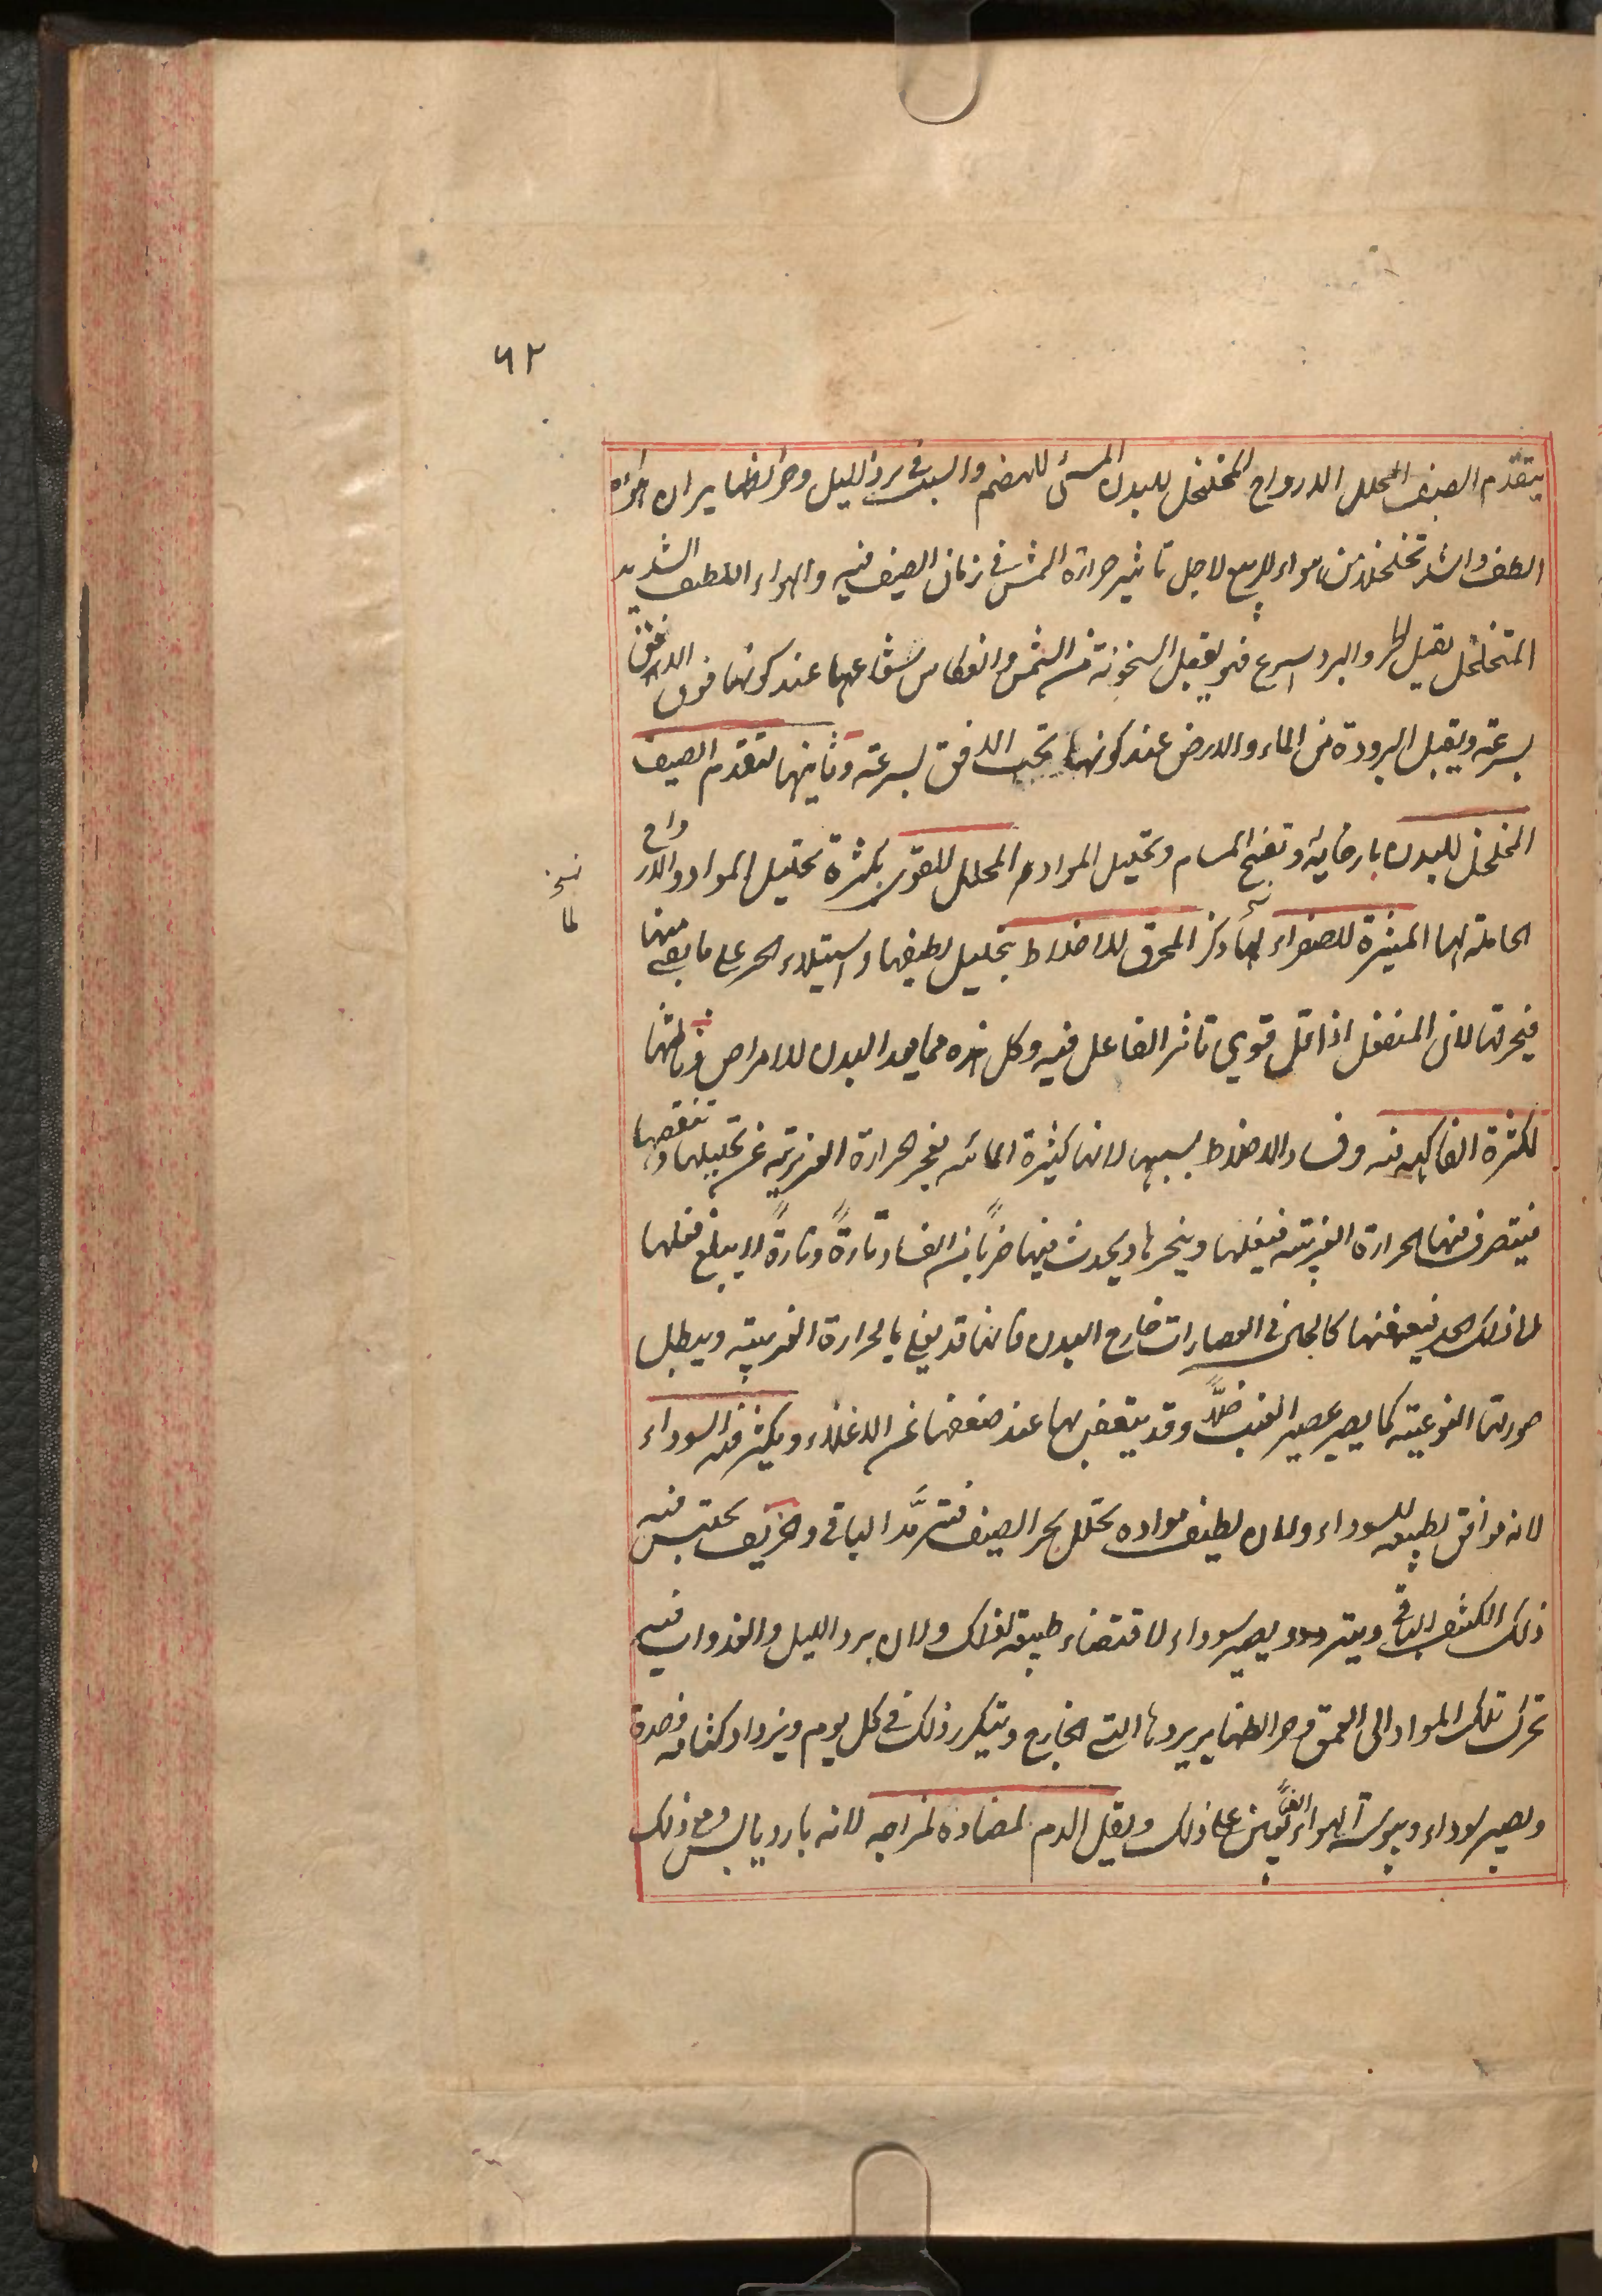 ٦٢
يتقدم الصيف المحلل للارواح المخلخل للبدن المسئ للهضم والسبب فى برد الليل وحر الظهاير ان هواءه
الطف واشد تخلخلا من هواء الربيع لاجل تاثير حرارة الشمس فى زمان الصيف فيه والهواء اللطيف الشديد
المتخلخل يقبل الحر والبرد اسرع فهو يقبل السخونة من الشمس وانعكاس شعاعها عند كونها فوق الافق
بسرعة ويقبل البرودة من الماء والارض عند كونها تحت الافق بسرعة وثانيها لتقدم الصيف
المخلخل للبدن بارخائه وتفتيح المسام وتحليل المواد المحلل للقوى بكثرة تحليل المواد والارواح
الحاملة لها المثيرة للصفراء لما ذكر المحرق للاخلاط بتحليل لطيفها واستيلاء الحر على ما بقى منها
نسخة
لما
فيحرقها لان المنفعل اذا قل قوي تاثر الفاعل فيه وكل هذه مما يعد البدن للامراض وثالثها
لكثرة الفاكهة فيه وفساد الاخلاط بسببها لانها كثيرة المائية فيعجز الحرارة الغريزية عن تحليلها ونفضها
فيتصرف فيها الحرارة الغريبة فيغليها ويبخرها ويحدث فيها ضربا من الفساد تارة وتارة لا يبلغ فعلها
الى ذلك الحد فيعفنها كالحال فى العصارات خارج البدن فانها قد يغلي بالحرارة الغريبة ويبطل
صورتها النوعية كما يصير عصير العنب خلا وقد يتعفن بها عند ضعفها عن الاغلاء ويكثر فيه السوداء
لانه موافق لطبيعه للسوداء ولان لطيف مواده تحلل بحر الصيف فترمد الباقى والخريف يحتبس فيه
ذلك الكثيف الباقى ويترمد ويصير سوداء لاقتضاء طبيعته لذلك ولان برد الليل والغدوات فيه
تحرك تلك المواد الى العمق وحر الظهاير يردها الى الخارج ويتكرر ذلك فى كل يوم ويزداد كثافة وحدة
ويصير سوداء ويبوسة الهواء ايضا يعين على ذلك ويقل الدم لمضادة لمزاجه لانه بارد يابس ومع ذلك